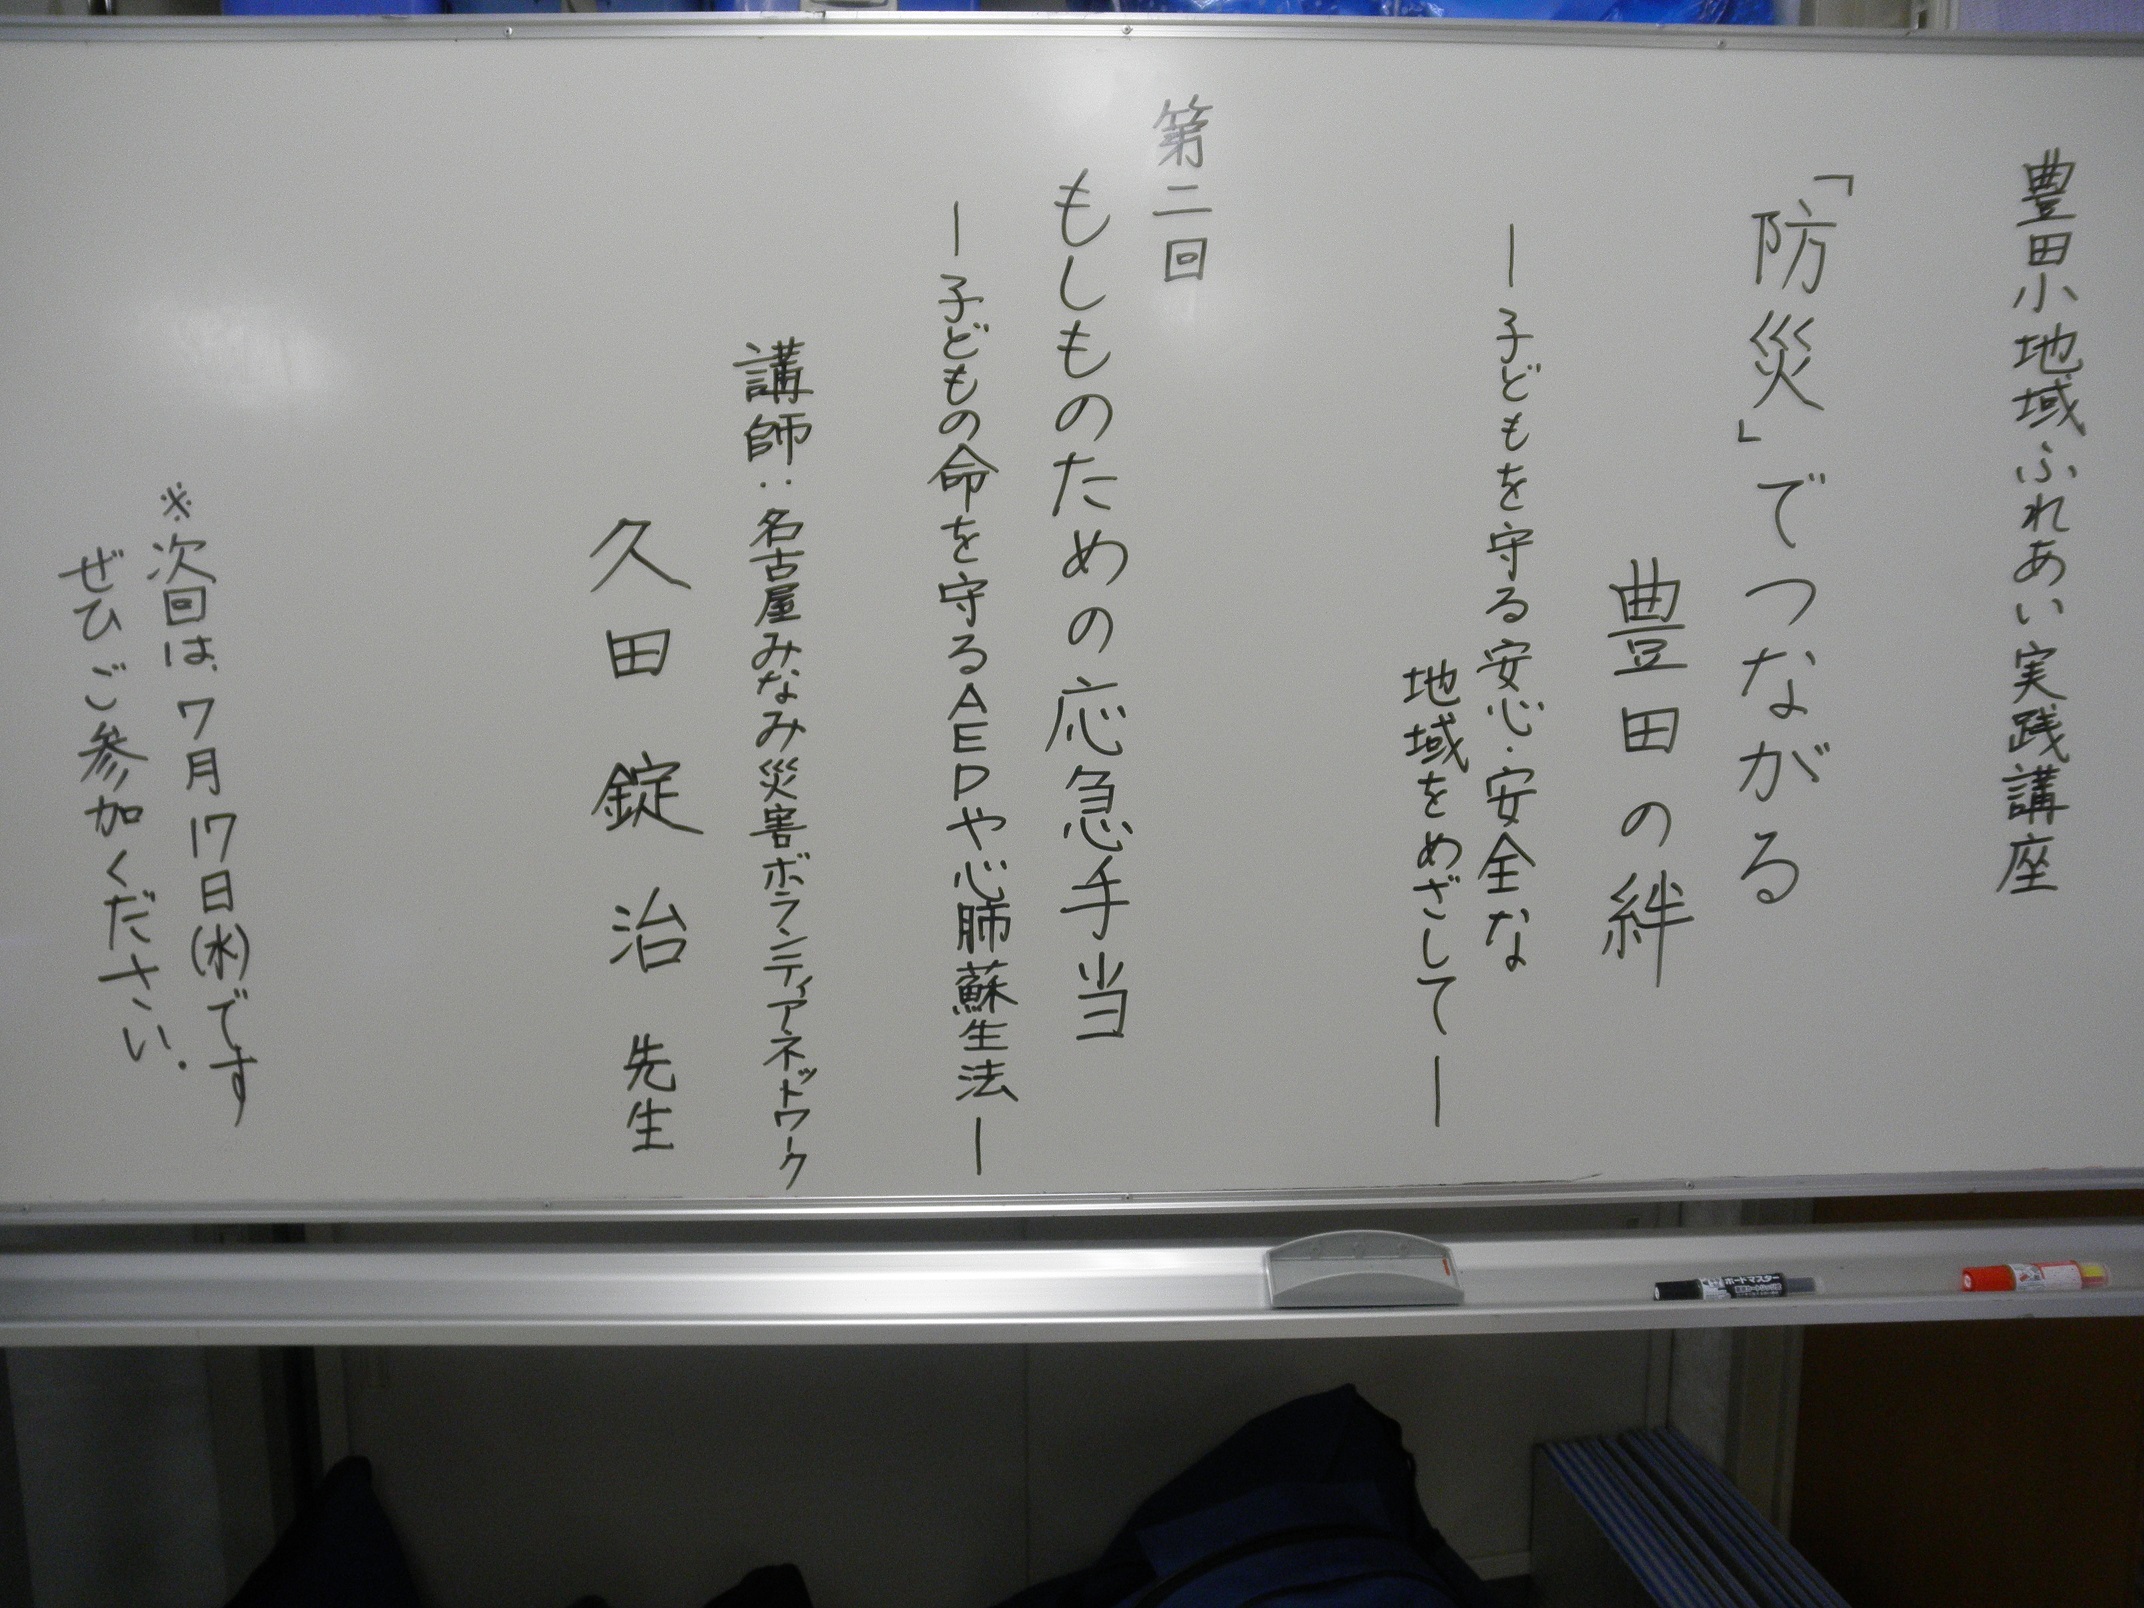 豊田小地域ふれあい実践講座
「防災」でつながる
豊田の絆
―子どもを守る安心・安全な
地域をめざして―
第二回
もしものための応急手当
―子どもの命を守るAEDや心肺蘇生法―
講師:名古屋みなみ災害ボランティアネットワーク
久田錠治先生
※次回は、7月17日(水)です
ぜひご参加ください.
ボードマスター